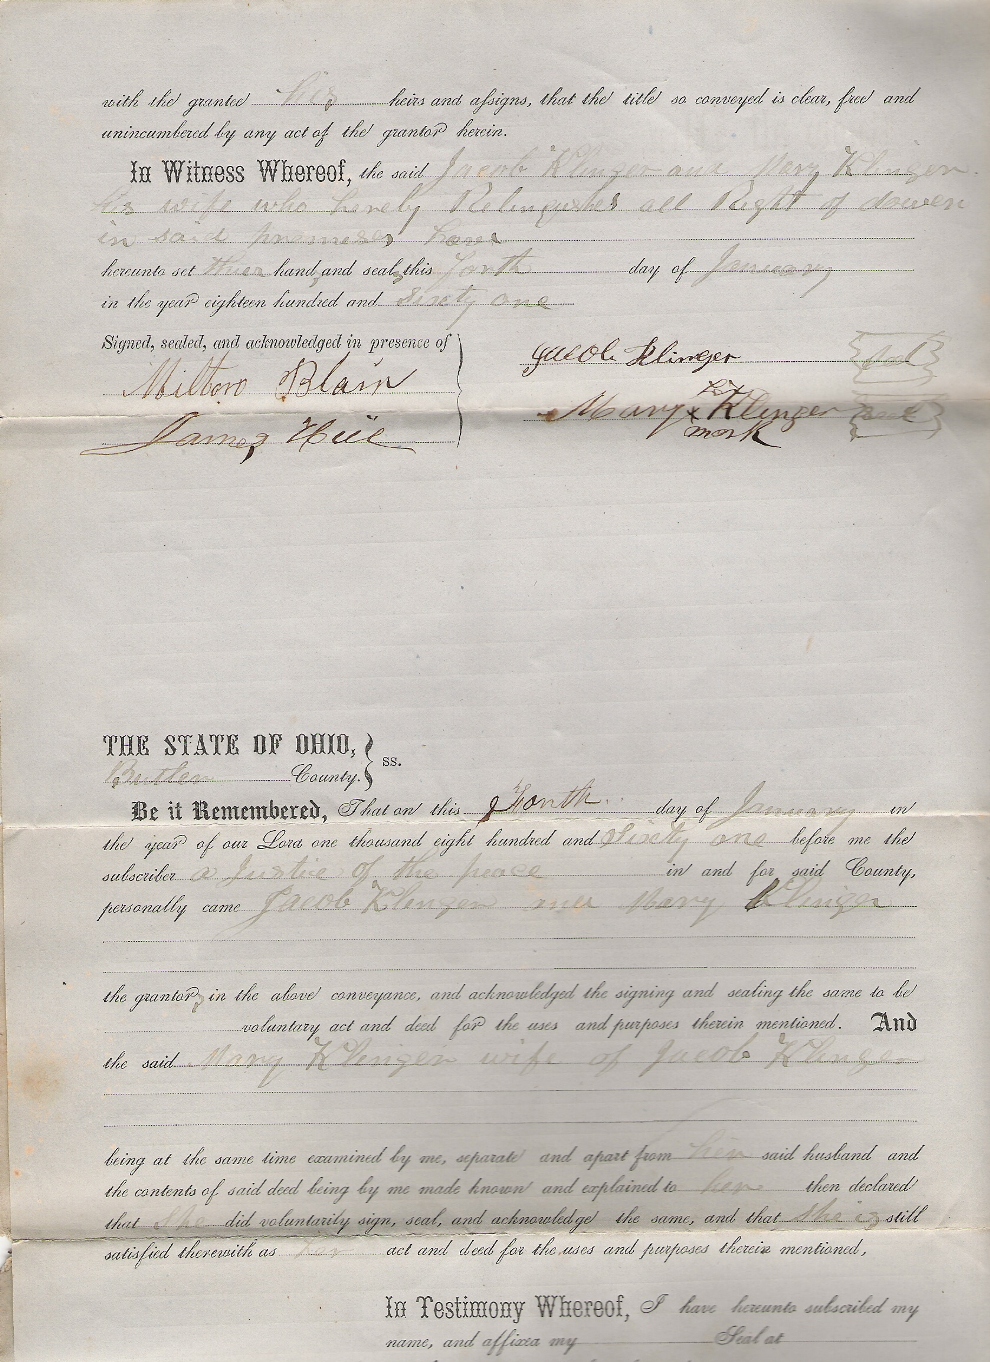 with the grantee his heirs and assigns, that the title so conveyed is clear, free and
unincumbered by any act of the grantor herein.
In Witness Whereof, the said Jacob Klinger and Mary Klinger
his wife who hereby Relinquishes all Right of dower
in said premises have
hereunto set their hands and seals this Fourth day of January
in the year eighteen hundred and Sixty one
Signed, sealed, and acknowledged in presence of
Milton Blair
James Hill
Jacob Klinger seal
Mary x Klinger seal
mark
THE STATE OF OHIO,
Butler County. ss.
Be it Remembered, That on this day of January in
the year of our Lord one thousand eight hundred and Sixty one before me the
subscriber a Justice of the peace in and for said County,
personally came Jacob Klinger and Mary Klinger
the grantors in the above conveyance, and acknowledged the signing and sealing the same to be
voluntary act and deed for the uses and purposes therein mentioned. And
the said Mary Klinger wife of Jacob Klinger
being at the same time examined by me, separate and apart from her said husband and
the contents of said deed being by me made known and explained to her then declared
that She did voluntarily sign, seal, and acknowledge the same, and that she is still
satisfied therewith as her act and deed for the uses and purposes therein mentioned,
In Testimony Whereof, I have hereunto subscribed my
name, and affixed my Seal at